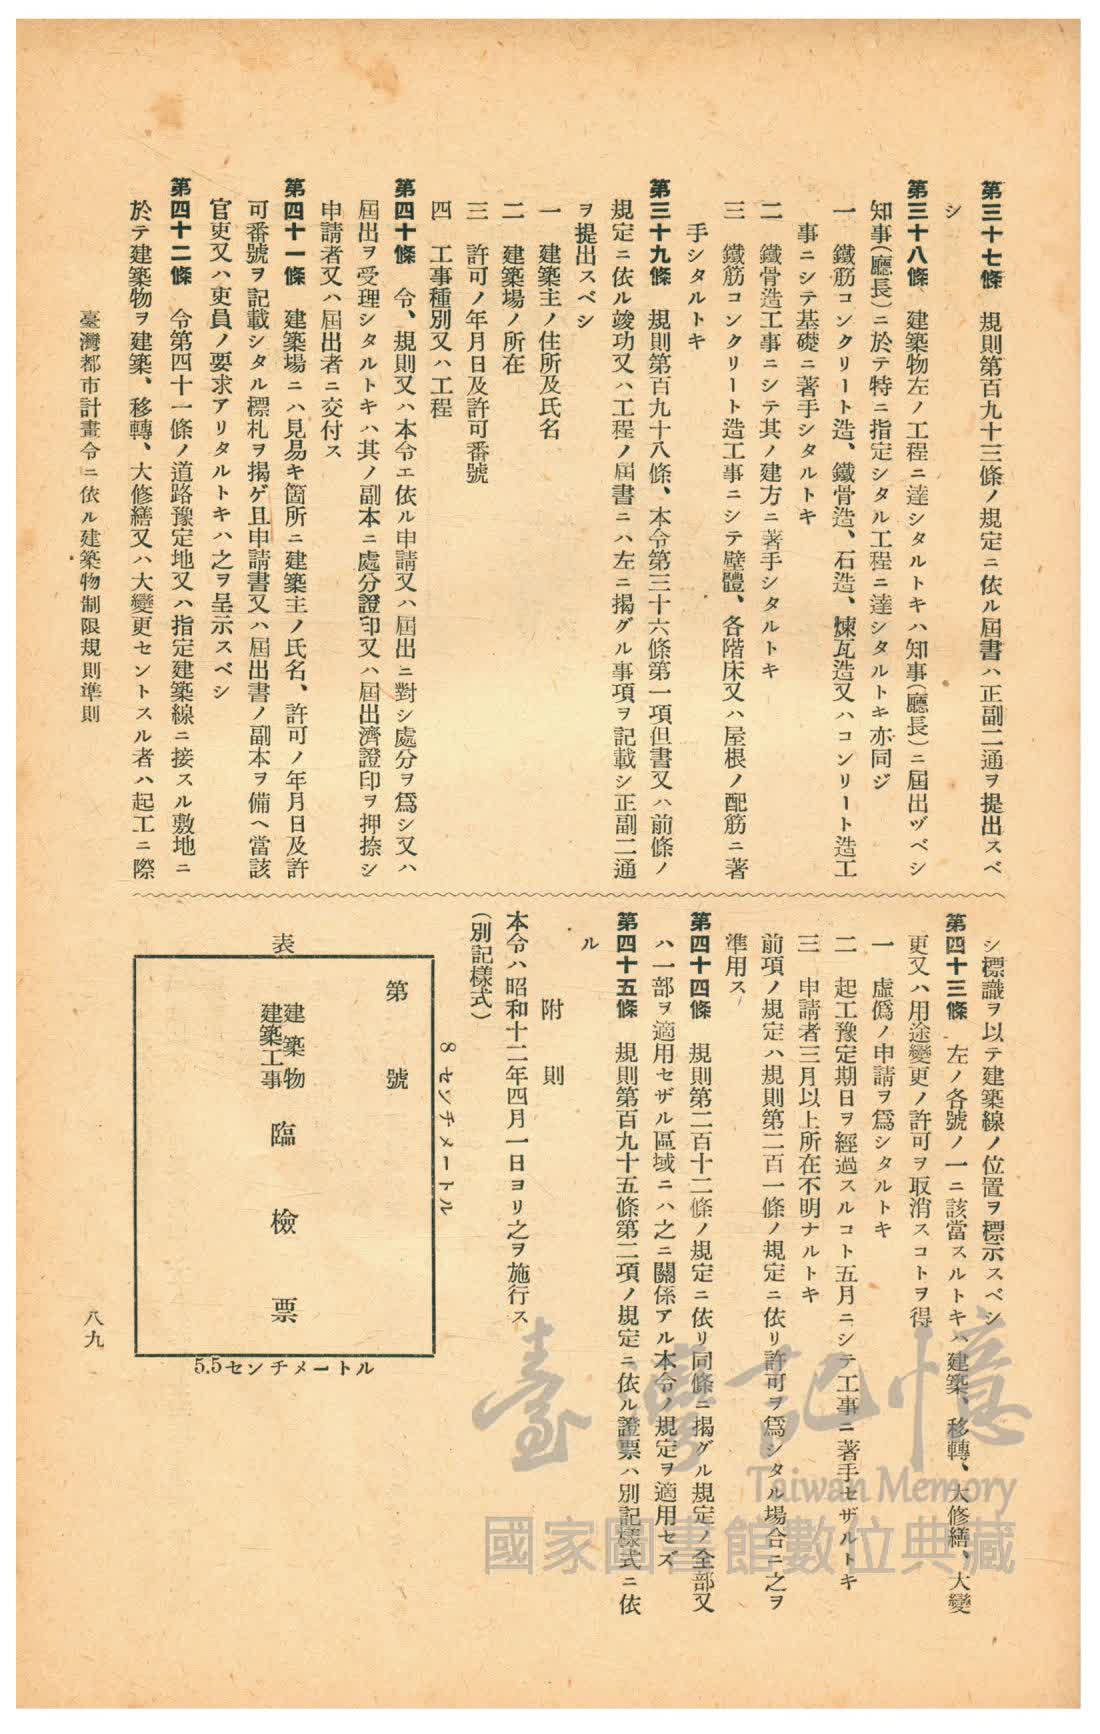 第三十七條　規則第百九十三條ノ規定ニ依ル屆書ハ正副二通ヲ提出スベ
シ
第三十八條　建築物左ノ工程ニ達シタルトキハ知事(廳長)ニ屆出ヅベシ
知事(廳長)ニ於テ特ニ指定シタル工程ニ達シタルトキ亦同ジ
一　鐵筋コンクリート造、鐵骨造、石造、煉瓦造又ハコンリート造工
事ニシテ基礎ニ著手シタルトキ
二　鐵骨造工事ニシテ其ノ建方ニ著手シタルトキ
三　鐵筋コンクリート造工事ニシテ壁體、各階床又ハ屋根ノ配筋ニ著
手シタルトキ
第三十九條　規則第百九十八條、本令第三十六條第一項但書又ハ前條ノ
規定ニ依ル竣功又ハ工程ノ屆書ニハ左ニ揭グル事項ヲ記載シ正副二通
ヲ提出スベシ
一　建築主ノ住所及氏名
二　建築場ノ所在
三　許可ノ年月日及許可番號
四　工事種別又ハ工程
第四十條　令、規則又ハ本令エ依ル申請又ハ屆出ニ對シ處分ヲ爲シ又ハ
屆出ヲ受理シタルトキハ其ノ副本ニ處分證印又ハ屆出濟證印ヲ押捺シ
申請者又ハ屆出者ニ交付ス
第四十一條　建築場ニハ見易キ箇所ニ建築主ノ氏名、許可ノ年月日及許
可番號ヲ記載シタル標札ヲ揭ゲ且申請書又ハ屆出書ノ副本ヲ備ヘ當該
官吏又ハ吏員ノ要求アリタルトキハ之ヲ呈示スベシ
第四十二條　令第四十一條ノ道路豫定地又ハ指定建築線ニ接スル敷地ニ
於テ建築物ヲ建築、移轉、大修繕又ハ大變更セントスル者ハ起工ニ際
シ標識ヲ以テ建築線ノ位置ヲ標示スベシ
第四十三條　左ノ各號ノ一ニ該當スルトキハ建築、移轉、大修繕、大變
更又ハ用途變更ノ許可ヲ取消スコトヲ得
一　虛僞ノ申請ヲ爲シタルトキ
二　起工豫定期日ヲ經過スルコト五月ニシテ工事ニ著手セザルトキ
三　申請者三月以上所在不明ナルトキ
前項ノ規定ハ規則第二百一條ノ規定ニ依リ許可ヲ爲シタル場合ニ之ヲ
準用ス
第四十四條　規則第二百十二條ノ規定ニ依リ同條ニ揭グル規定ノ全部又
ハ一部ヲ適用セザル區域ニハ之ニ關係アル本令ノ規定ヲ適用セズ
第四十五條　規則第百九十五條第二項ノ規定ニ依ル證票ハ別記樣式ニ依
ル
附則
本令ハ昭和十二年四月一日ヨリ之ヲ施行ス
(別記樣式)
8センチメートル
第　號
建築物
建築工事
臨檢票
表
5.5センチメートル
臺灣都市計畫令ニ依ル建築物制限規則準則
八九
臺灣記憶
Taiwan Memory
國家圖書館數位典藏